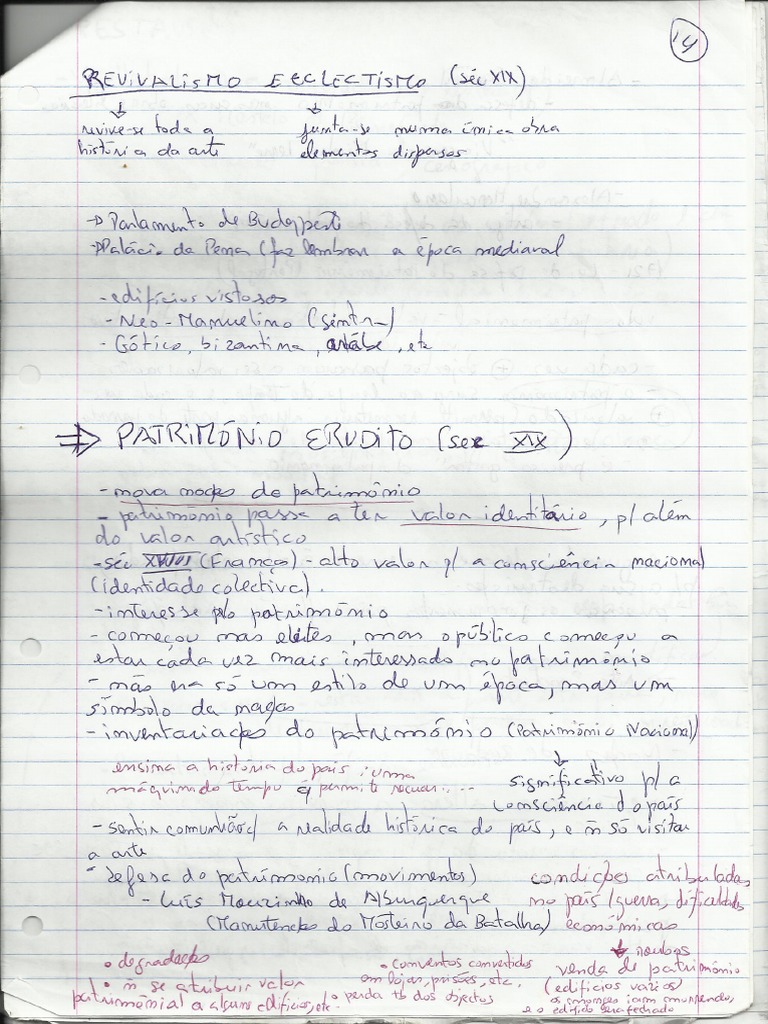 14
REVIVALISMO E ECLECTISMO (séc XIX)
revive-se toda a
história da arte
junta-se numa única obra
elementos dispersos
→ Parlamento de Budapeste
→ Palácio da Pena (faz lembrar a época mediaval
- edifícios vistosos
- Neo-Manuelino (Sintra)
- Gótico, bizantina, árabe, etc
⇒ PATRIMÓNIO ERUDITO (sec XIX)
- nova noção de património
- património passa a ter valor identitário, p/ além
do valor artístico
- séc XVIII (França) - alto valor p/ a consciência nacional
(identidade colectiva).
- interesse p/o património
- começou nas elites, mas o público começou a
estar cada vez mais interessado no património
- não era só um estilo de um época, mas um
símbolo da nação
- inventariação do património (Património Nacional)
ensina a história do país; uma
máquina do tempo q permite recuar...
significativo p/ a
consciência do país
- sentir comunhão c/ a realidade histórica do país, e ñ só visitar
a arte
- defesa do património (movimentos)
- Luís Mouzinho de Albuquerque
(Manutenção do Mosteiro da Batalha)
condições atribuladas
no país (guerra, dificuldades
económicas
→ roubos
• degradação
• ñ se atribuir valor
patrimónial a alguns edifícios, etc.
• conventos convertidos
em lojas, prisões, etc.
• perda tb dos objectos
venda de património
(edifícios varios)
e o edifício sera fechado